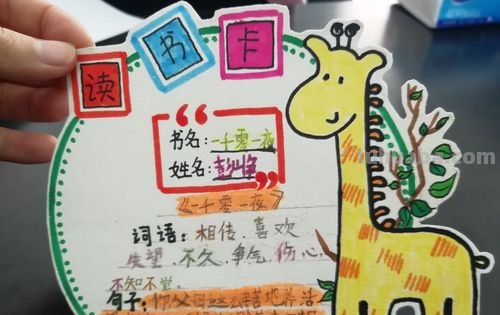 读书卡
书名:一千零一夜
姓名:
《一千零一夜》
词语:相传、喜欢
失望、不久、争气、伤心、
不知不觉。
句子:你父母